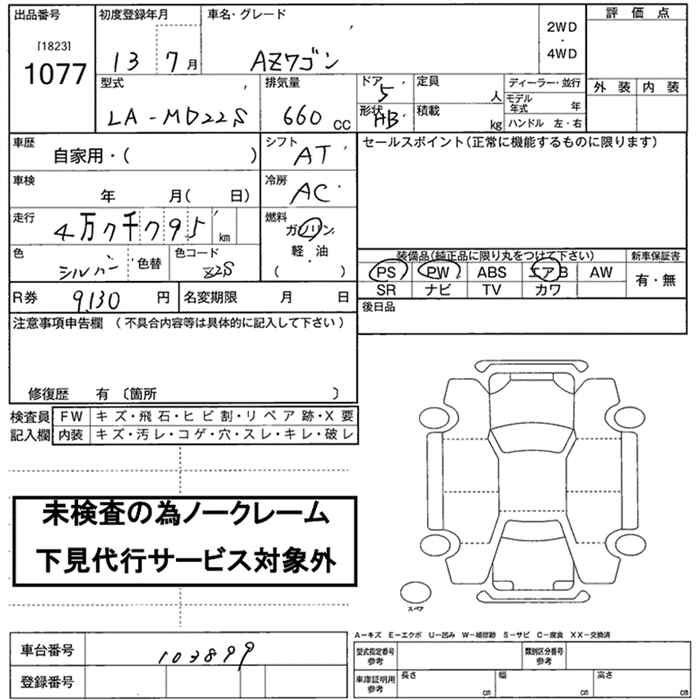 出品番号 初度登録年月 車名・グレード 評価点
[1823] 1077
13 7月 AZワゴン 2WD ・ 4WD
型式 LA-MD22S 排気量 660 CC ドア 5 定員 人 ディーラー・並行 外装 内装
形状 HB 積載 kg モデル年式 年
ハンドル 左・右
車歴 自家用・( ) シフト AT セールスポイント(正常に機能するものに限ります)
車検 年 月( 日) 冷房 AC
走行 4万7千795 km 燃料 ガソリン
軽・油
( ・ )
色 シルバー 色替 色コード Z2S
装備品(純正品に限り丸をつけて下さい) 新車保証書
PS PW ABS エアB AW 有・無
SR ナビ TV カワ
R券 9,130 円 名変期限 月 日 後日品
注意事項申告欄 (不具合内容等は具体的に記入して下さい)
修復歴 有 〔箇所 〕
検査員 FW キズ・飛石・ヒビ割・リペア跡・X要
記入欄 内装 キズ・汚レ・コゲ・穴・スレ・キレ・破レ
未検査の為ノークレーム
下見代行サービス対象外
スペア
A-キズ E-エクボ U-凹み W-補修跡 S-サビ C-腐食 XX-交換済
車台番号 103899 型式指定番号 参考 類別区分番号 参考
登録番号 車庫証明用 参考 長さ cm 幅 cm 高さ cm